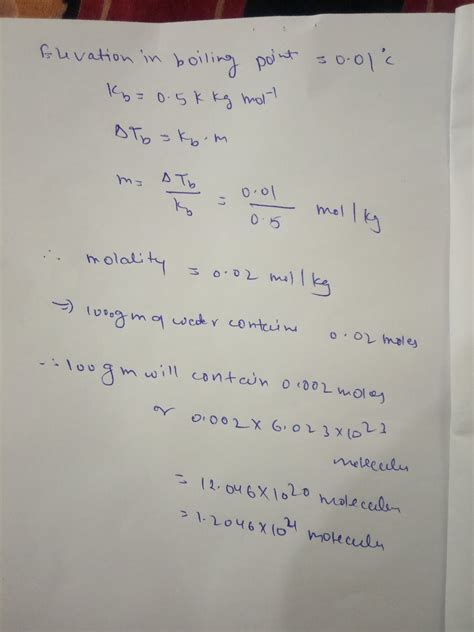 Elevation in boiling point = 0.01°c
Kb = 0.5 k kg mol-1
ΔTb = Kb . m
m = ΔTb / Kb = 0.01 / 0.5 mol / kg
∴ molality = 0.02 mol / kg
=> 1000gm of water contains 0.02 moles
∴ 100 gm will contain 0.002 moles
or 0.002 x 6.023 x 10^23
molecules
= 12.046 x 10^20 molecules
= 1.2046 x 10^21 molecules